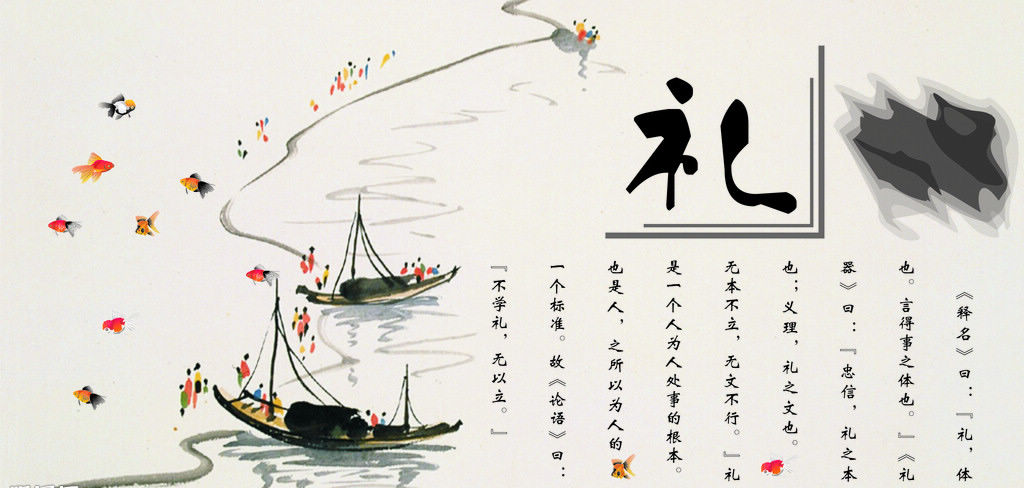 礼
《释名》曰：『礼，体
也。言得事之体也。』《礼
器》曰：『忠信，礼之本
也；义理，礼之文也。
无本不立，无文不行。』礼
是一个人为人处事的根本。
也是人，之所以为人的
一个标准。故《论语》曰：
『不学礼，无以立。』